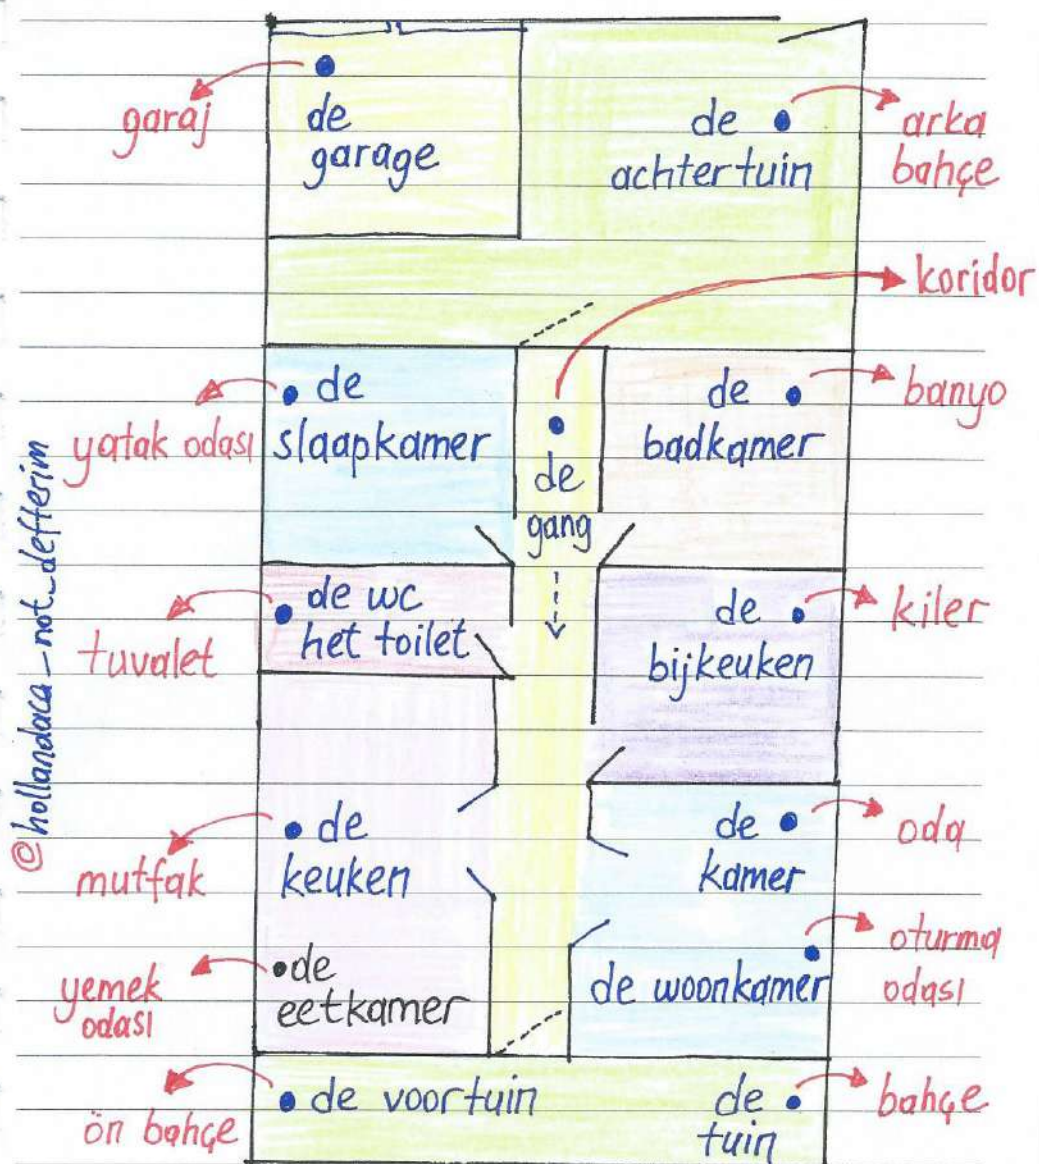 garaj
de
garage
de
achtertuin
arka
bahçe
koridor
yatak odası
de
slaapkamer
de
gang
de
badkamer
banyo
tuvalet
de wc
het toilet
de
bijkeuken
kiler
mutfak
de
keuken
de
kamer
oda
yemek
odası
de
eetkamer
de woonkamer
oturma
odası
ön bahçe
de voortuin
de
tuin
bahçe
@hollandaca_not_defterim